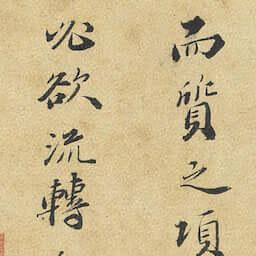 而質之項
必欲流轉